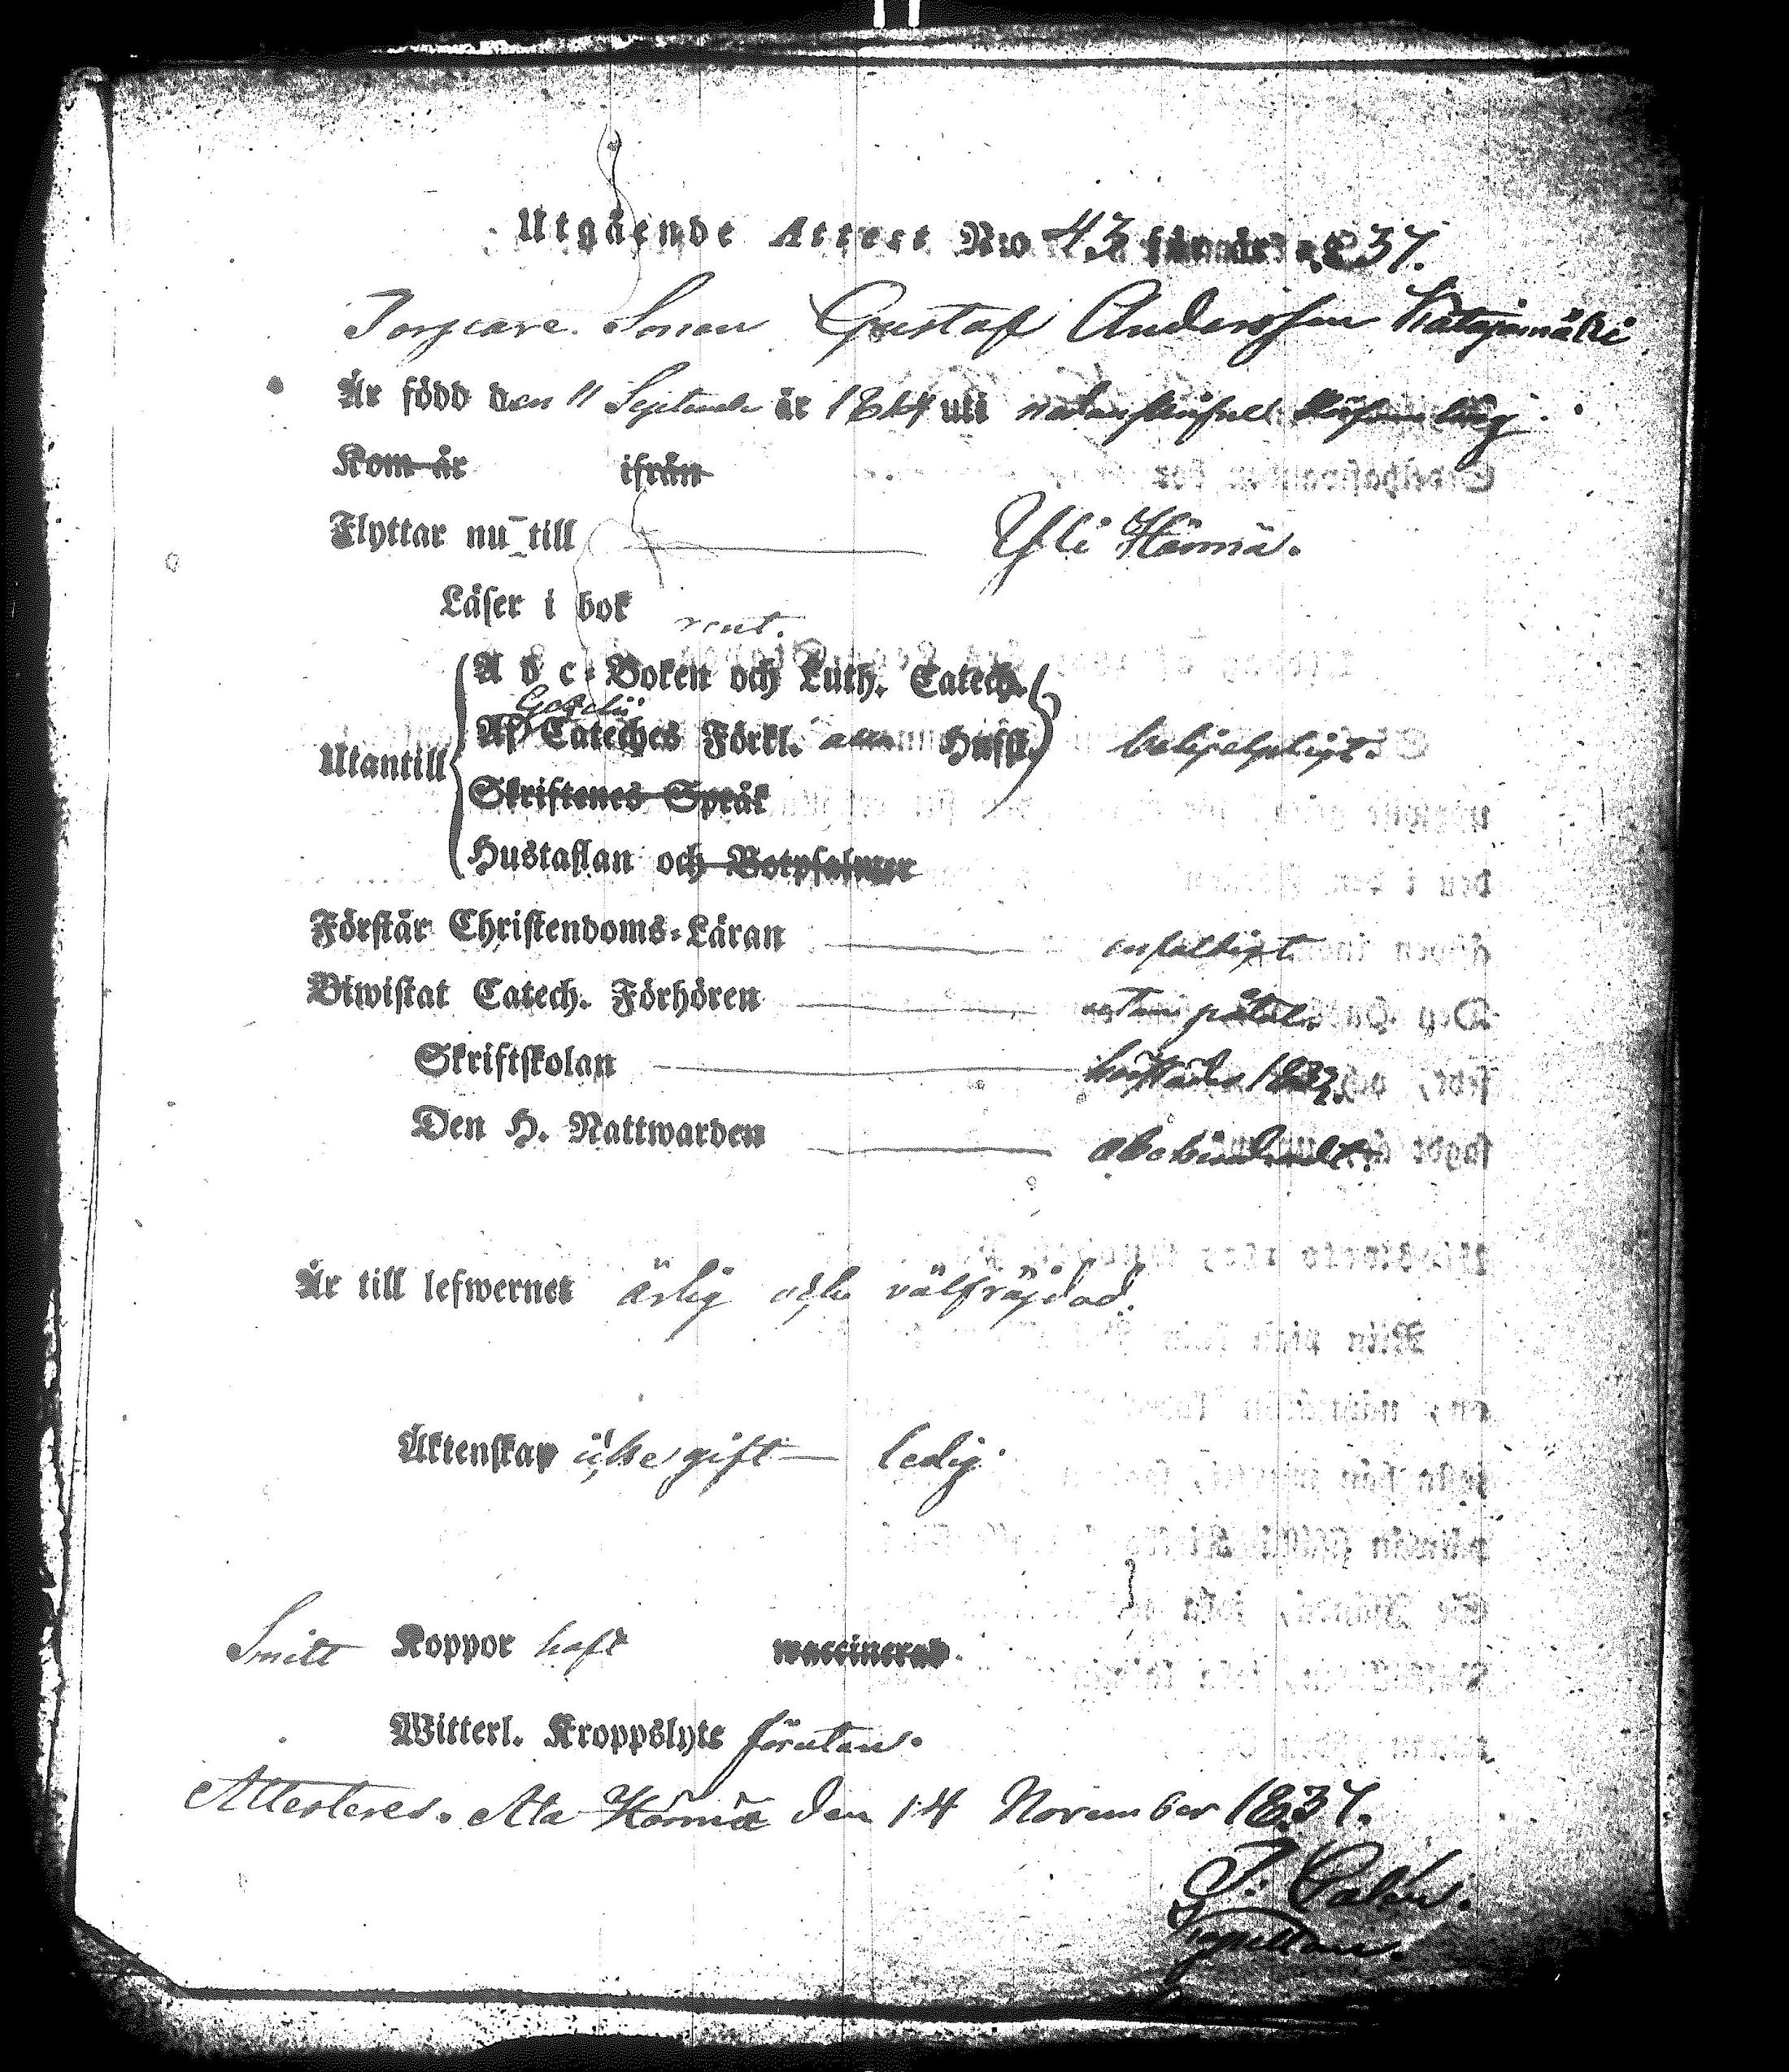 Utgående Attest No 43 för år 1837.
Torpare Sonen Gustaf Andersson Katajamäki
Är född den 11 September år 1814 uti
Kom år ifrån
Flyttar nu till Yli Härmä.
Läser i bok rent.
A b c-Boken och Luth. Catech.
Af Cateches Förkl. Hufst. behjelpligt.
Utantill
Skriftenes Språk
Hustaflan och Botpsalmer
Förstår Christendoms-Läran enfaldigt.
Biwistat Catech. Förhören
Skriftskolan
Den H. Nattwarden obehindradt.
Är till lefwernet ärlig och välfräjdad.
Äktenskap icke gift ledig.
Smitt Koppor haft waccinerad.
Witterl. Kroppslyte förutan.
Attesteras. Ala Härmä den 14 November 1837.
Kapellan.